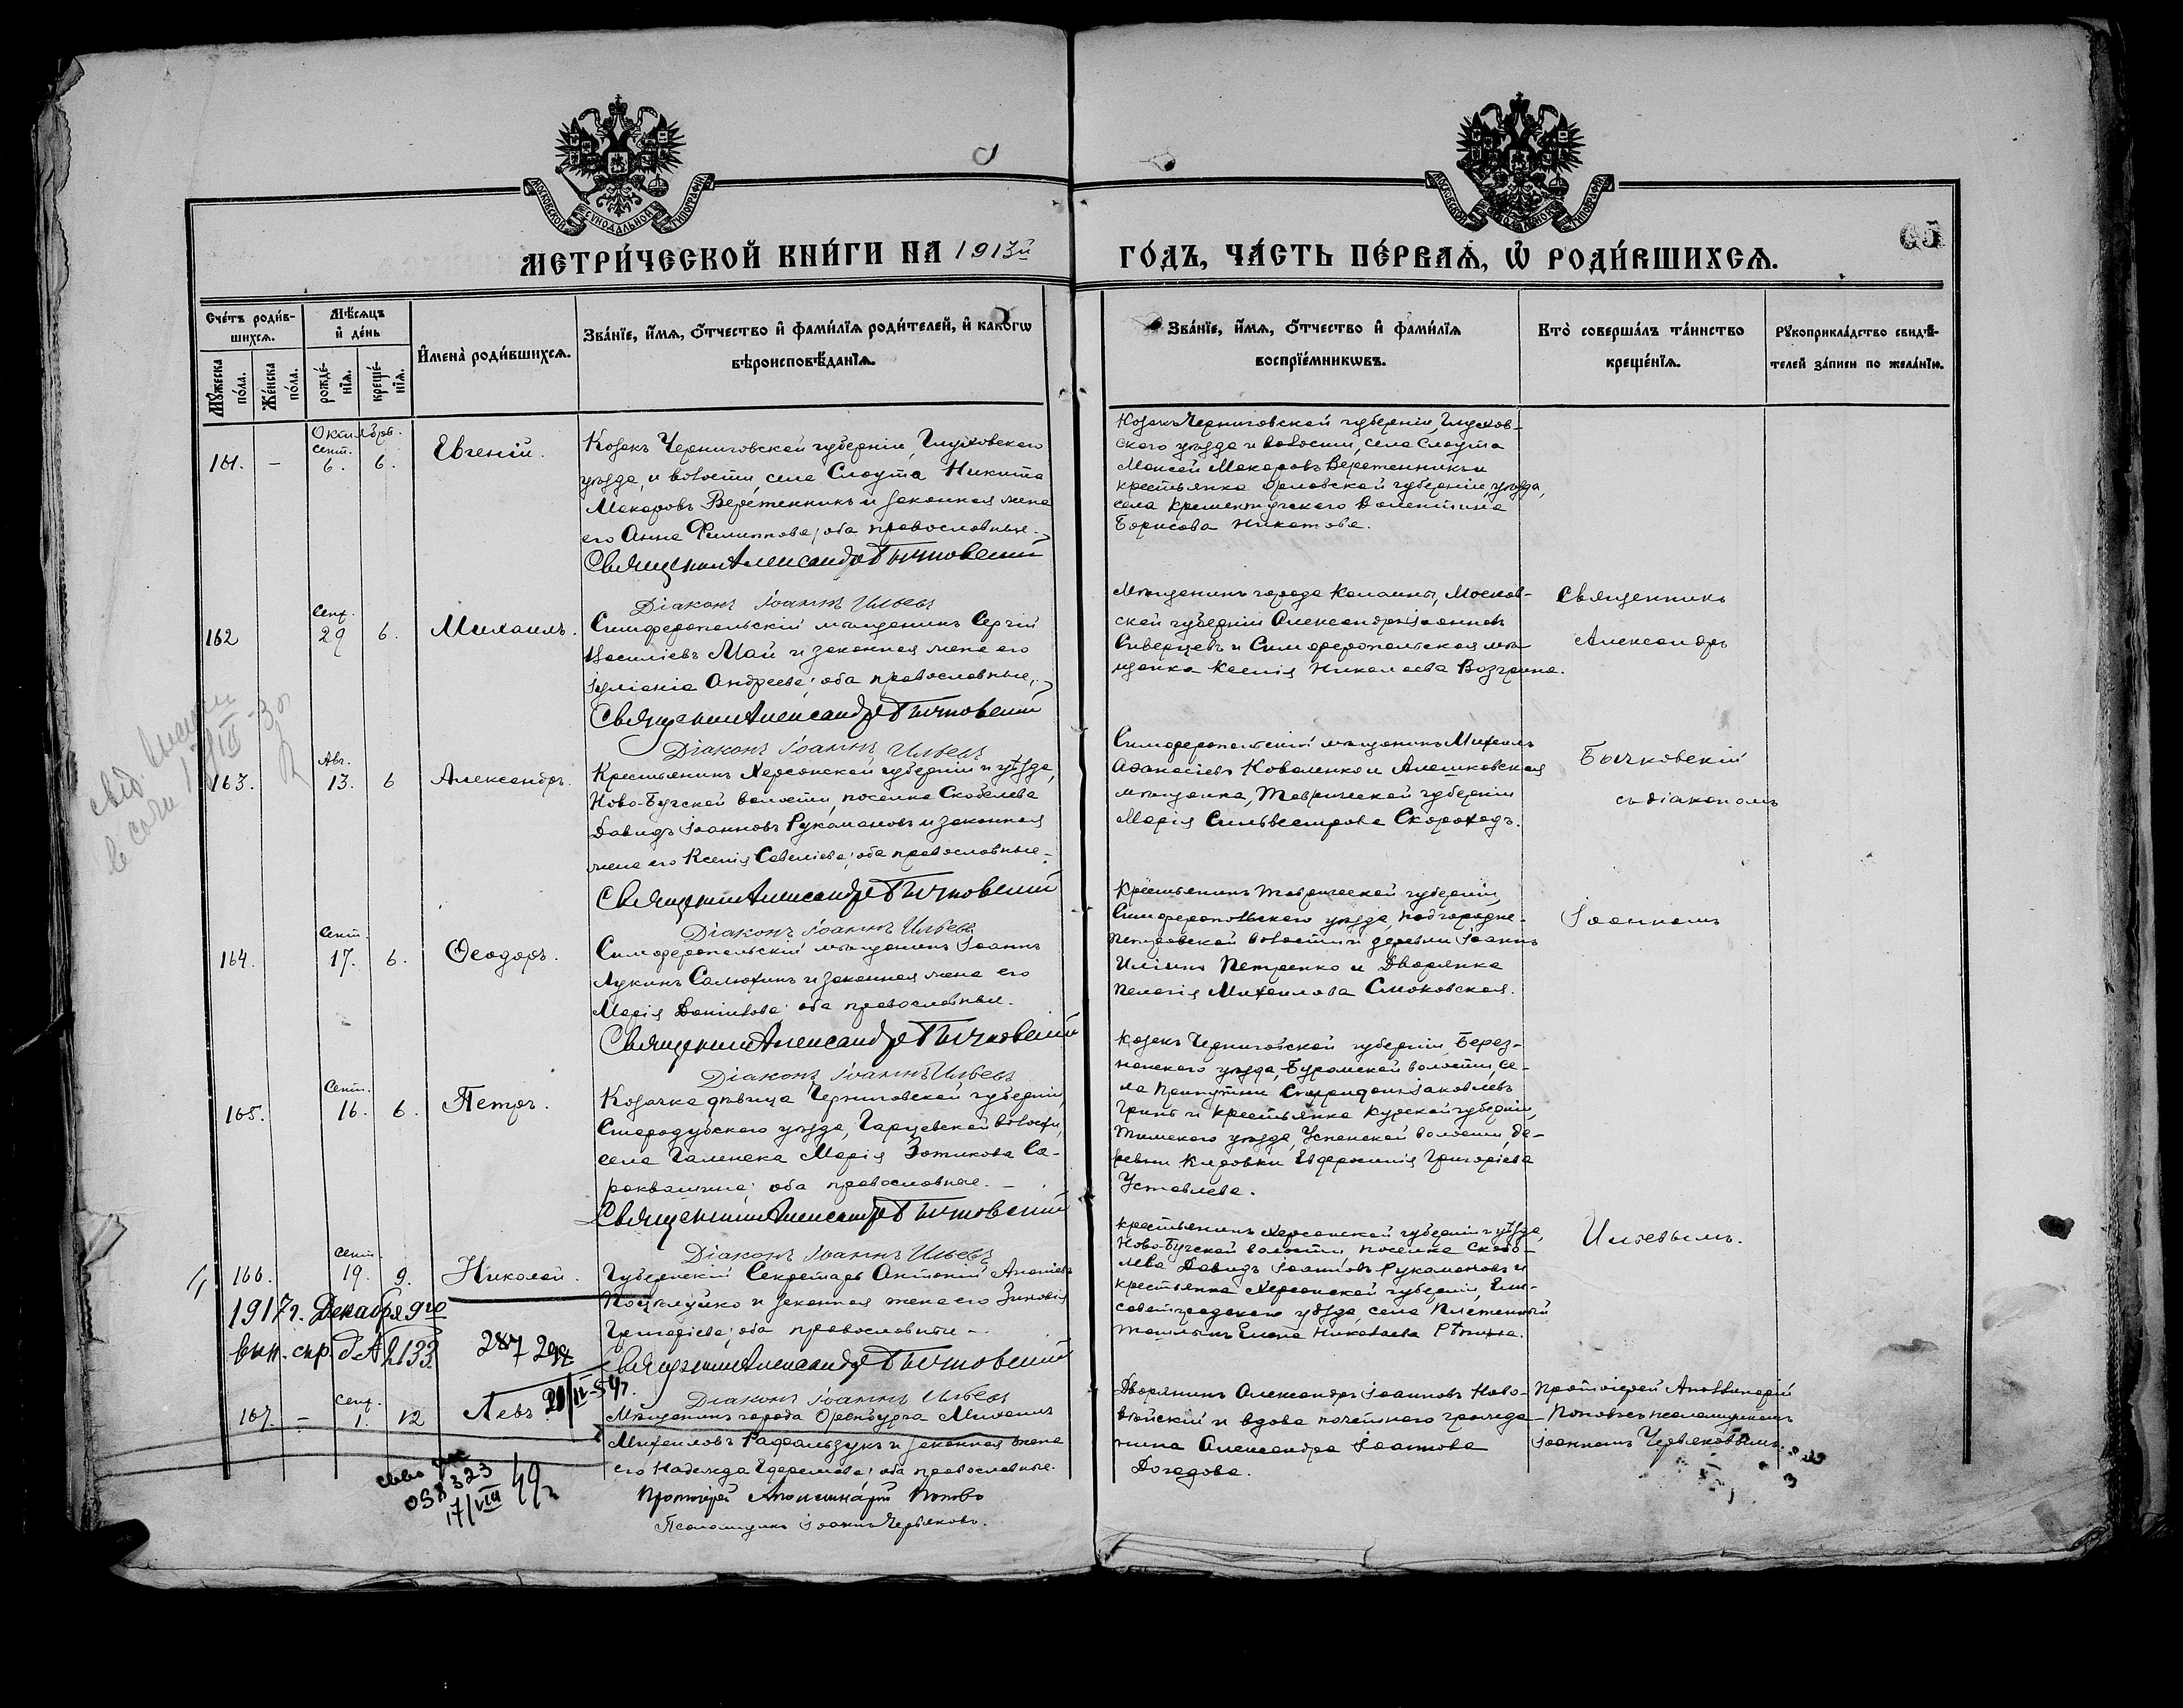 МОСКОВСКОЙ СѴНОДАЛЬНОЙ ТИПОГРАФІИ
МОСКОВСКОЙ СѴНОДАЛЬНОЙ ТИПОГРАФІИ
65
МЕТРИ́ЧЕСКОЙ КНИ́ГИ НА 1913й
ГО́ДЪ, ЧА́СТЬ ПЕ́РВАѦ, Ѡ҆ РОДИ́ВШИХСѦ.
Сче́тъ роди́в-
шихсѧ.
Мꙋ́жеска по́ла.
Же́нска по́ла.
Мѣ́сѧцъ
и҆ де́нь
рожде́-
нїѧ.
креще́-
нїѧ.
И҆мена̀ роди́вшихсѧ.
Зва́нїе, и҆́мѧ, ѻ҆́тчество и҆ фами́лїѧ роди́телей, и҆ како́гѡ
вѣроисповѣ́данїѧ.
Зва́нїе, и҆́мѧ, ѻ҆́тчество и҆ фами́лїѧ
воспрїе́мникѡвъ.
Кто̀ соверша́лъ та́инство
креще́нїѧ.
Рꙋкоприкла́дство свидѣ́-
телей за́писи по жела́нїю.
Октябрь.
Сент.
161. – 6. 6. Евгеній.
Козакъ Черниговской губерніи, Глуховскаго
уѣзда, и волости села Слоута Никита
Макаровъ Веретенникъ и законная жена
его Анна Филиппова; оба православные.
Священникъ Александръ Бычковскій
Діаконъ Іоаннъ Ильевъ
Козакъ Черниговской губерніи, Глухов-
скаго уѣзда и волости, села Слоута
Моисей Макаровъ Веретенникъ и
крестьянка Орловской губерніи, уѣзда,
села Валентина
Борисова
Сент.
162 29 6. Михаилъ.
Симферопольскій мѣщанинъ Сергій
Василіевъ Май и законная жена его
Іуліанія Андреева; оба православные.
Священникъ Александръ Бычковскій
Діаконъ Іоаннъ Ильевъ
Мѣщанинъ города Коломны, Москов-
ской губерніи Александръ Іоанновъ
Сиверцевъ и Симферопольская мѣ-
щанка Ксенія Николаева
Священникъ
Александръ
Авг.
163. 13. 6 Александръ.
Крестьянинъ Херсонской губерніи и уѣзда,
Ново-Бугской волости, поселка Скобелева
Давидъ Іоанновъ Рукомановъ и законная
жена его Ксенія Савеліева; оба православные.
Священникъ Александръ Бычковскій
Діаконъ Іоаннъ Ильевъ
Симферопольскій мѣщанинъ Михаилъ
Аѳанасіевъ Коваленко и Алешковская
мѣщанка, Таврической губерніи
Марія Сильвестрова Скороходъ.
Бычковскій
съ діакономъ
Сент.
164. 17. 6. Ѳеодоръ.
Симферопольскій мѣщанинъ Іоаннъ
Лукинъ Салюхинъ и законная жена его
Марія Даніилова; оба православные.
Священникъ Александръ Бычковскій
Діаконъ Іоаннъ Ильевъ
Крестьянинъ Таврической губерніи,
Симферопольскаго уѣзда, Подгородне-
Петровской волости и деревни Іоаннъ
Иліинъ Петренко и Дворянка
Пелагія Михаилова Смоковская.
Іоанномъ
Сент.
165. 16. 6. Петръ.
Козачка дѣвица Черниговской губерніи,
Стародубскаго уѣзда, Гарцевской волости,
села Галенска Марія Зотикова Са-
оба православные.
Священникъ Александръ Бычковскій
Діаконъ Іоаннъ Ильевъ
Козакъ Черниговской губерніи, Берез-
нянскаго уѣзда, Буромской волости, се-
ла Припутни Спиридонъ Іаковлевъ
Гринь и крестьянка Курской губерніи,
Тимскаго уѣзда, Успенской волости, де-
ревни Евфросинія Григоріева
Уставлева.
Ильевымъ.
Сент.
166. 19. 9. Николай.
Губернскій Секретарь Антоній Ананіевъ
Поцѣлуйко и законная жена его Зиновія
Григоріева; оба православные.
Священникъ Александръ Бычковскій
Діаконъ Іоаннъ Ильевъ
1917г. Декабря 9го
вып. спр. d № 2133
287 298
Крестьянинъ Херсонской губерніи и уѣзда,
Ново-Бугской волости, поселка Скобе-
лева Давидъ Іоанновъ Рукомановъ и
крестьянка Херсонской губерніи, Ели-
саветградскаго уѣзда, села Плетеный
Ташлыкъ Елена Николаева Рѣпина.
20/II-54г.
Сент.
167. – 1. 12 Левъ
Мѣщанинъ города Оренбурга Михаилъ
Михаиловъ и законная жена
его Надежда; оба православные.
Протоіерей Аполлинарій Поповъ
Псаломщикъ Іоаннъ Червяковъ.
Дворянинъ Александръ Іоанновъ Ново-
и вдова почетнаго гражда-
нина Александра Іоаннова
Догадова.
Протоіерей Аполлинарій
Поповъ съ псаломщикомъ
Іоанномъ Червяковымъ.
058323
17/VIII 49г